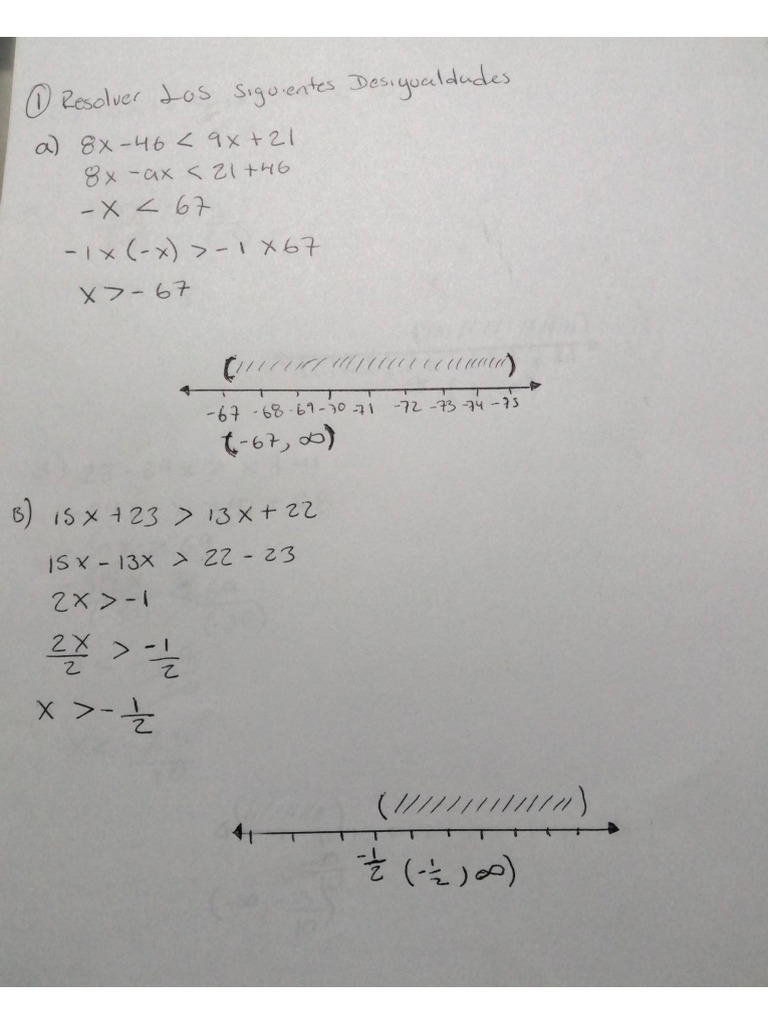 ① Resolver Los Siguientes Desigualdades
a) 8x-46 < 9x+21
8x-9x < 21+46
-x < 67
-1x(-x) > -1x67
x > -67
-67 -68 -69 -70 -71 -72 -73 -74 -75
(-67, ∞)
B) 15x+23 > 13x+22
15x-13x > 22-23
2x > -1
2x/2 > -1/2
x > -1/2
-1/2 (-1/2, ∞)